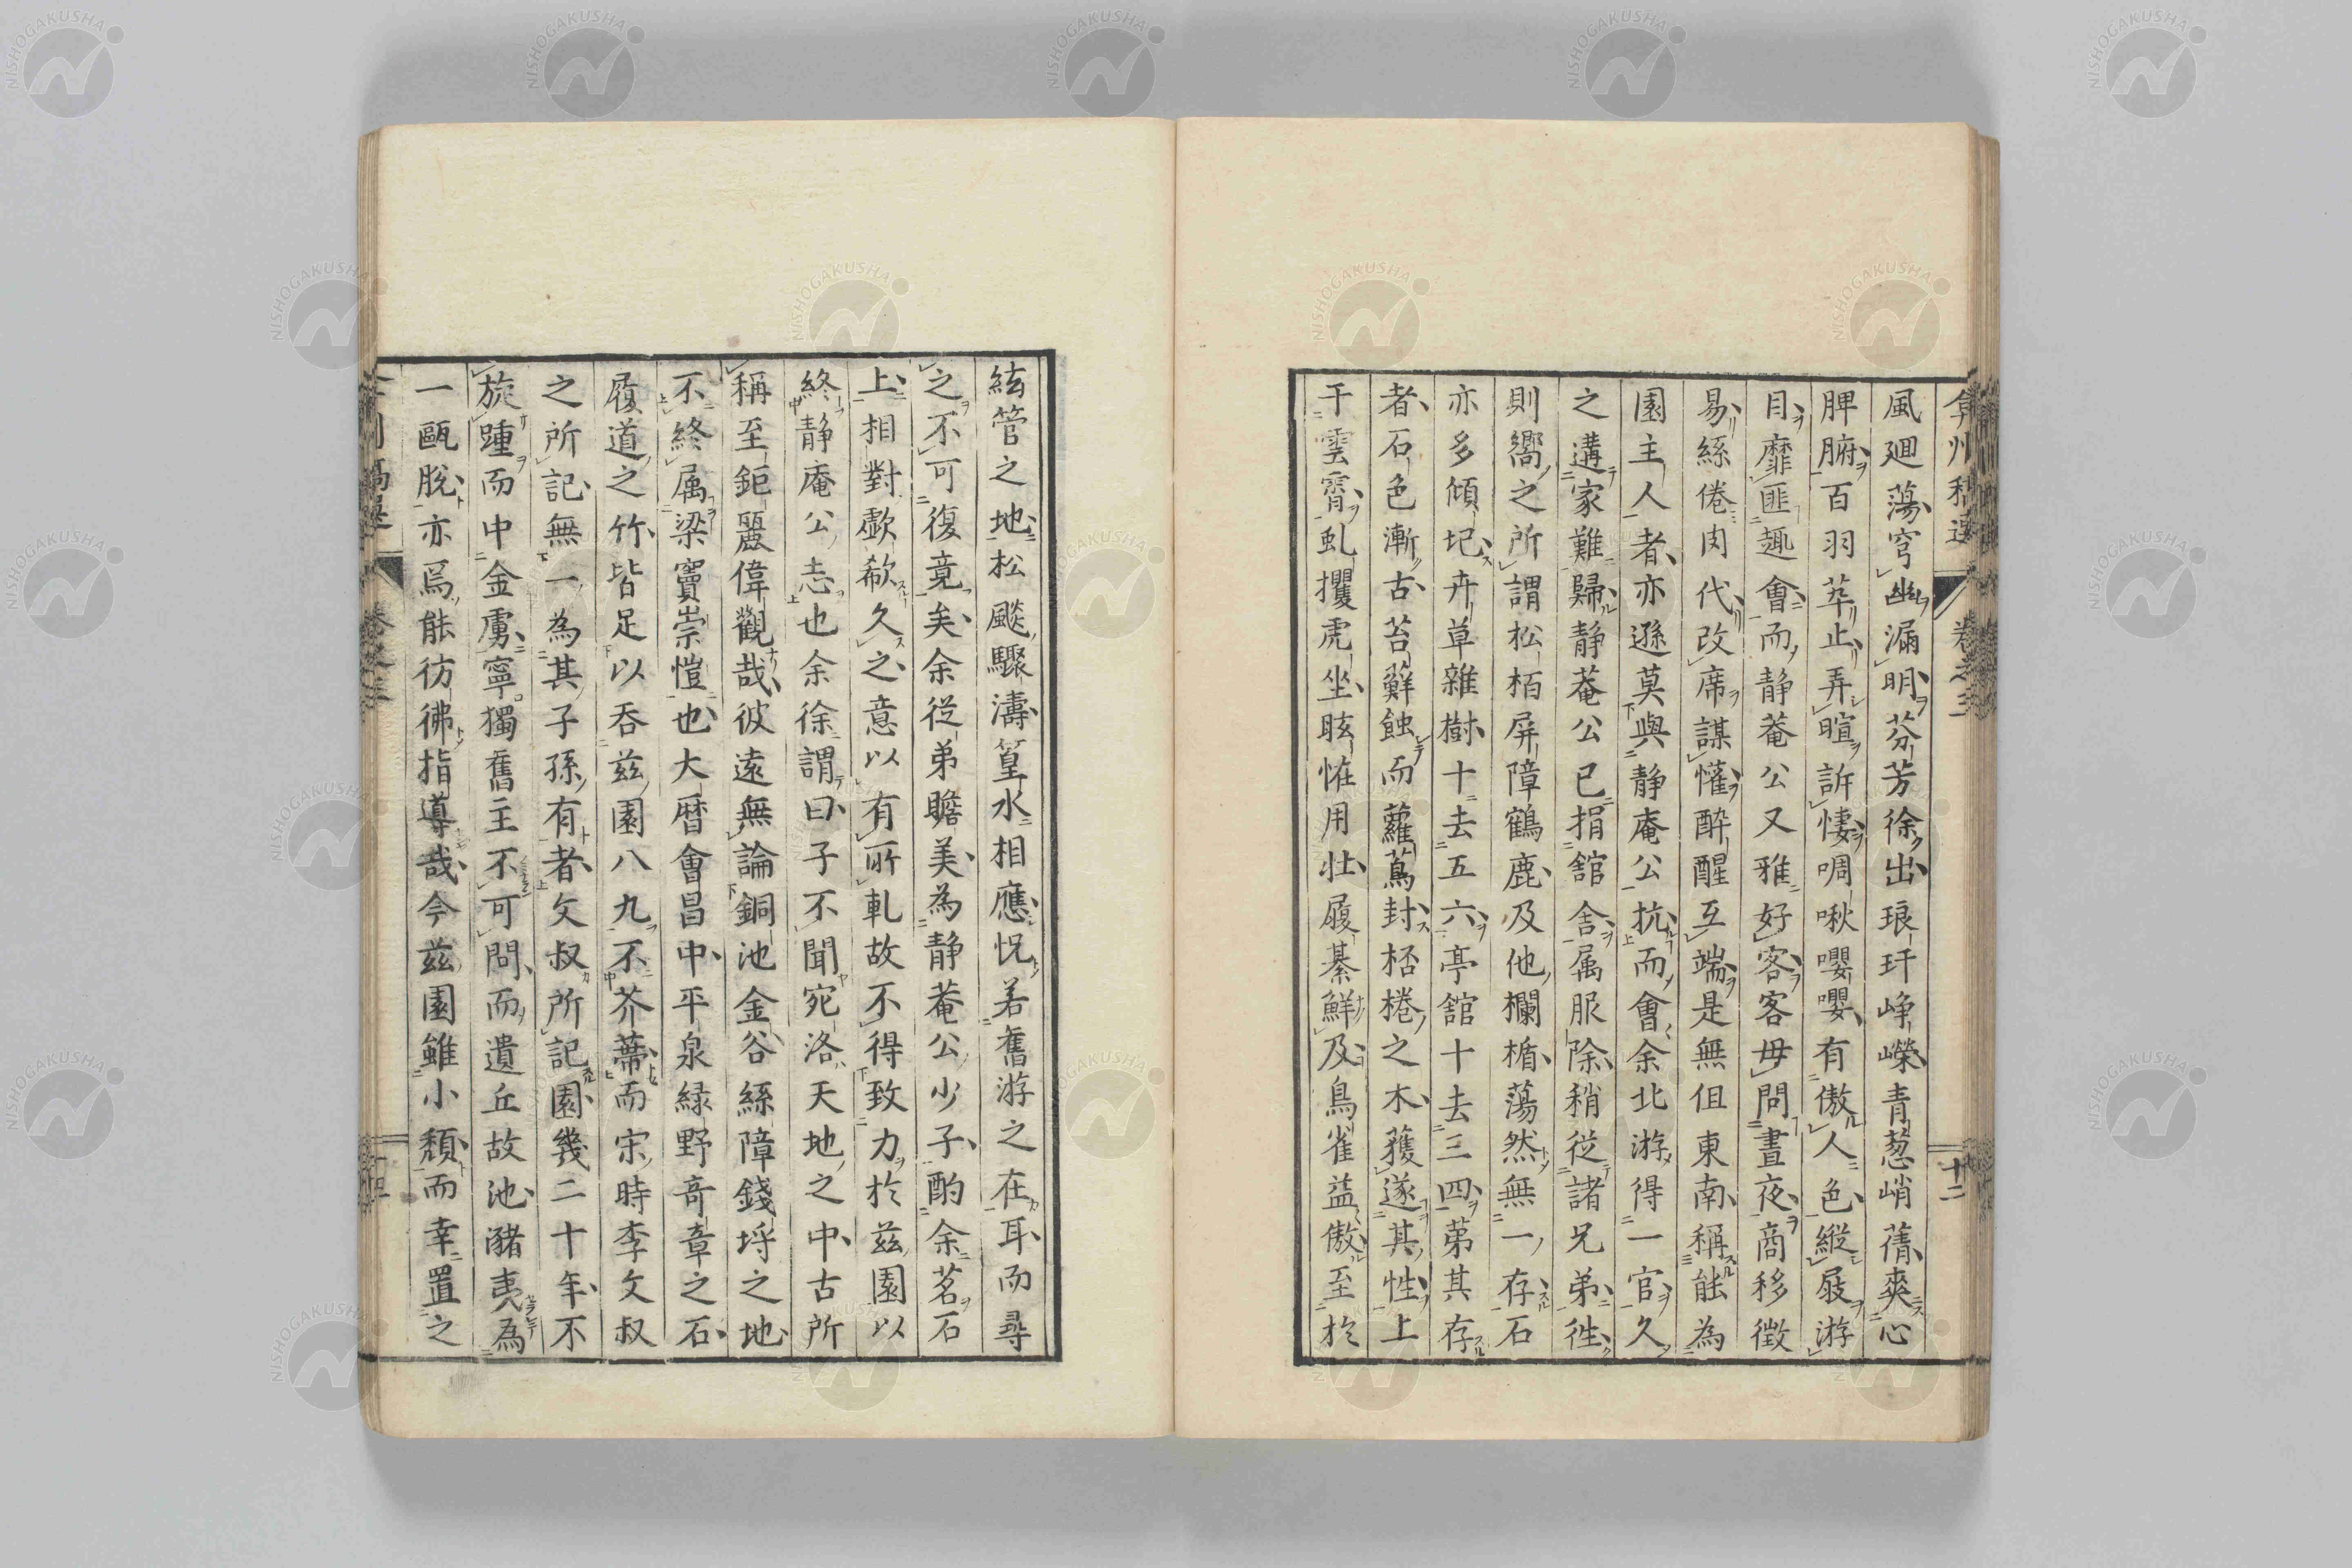 弇州稿選 卷之三 十二
風廻蕩穹幽漏明芬芳徐出琅玕崢嶸青葱峭蒨爽心
脾腑百羽萃止弄暄訴悽啁啾嚶嚶有傲人色縱屐游
目靡匪趣會而静菴公又雅好客客毋問晝夜商移徵
易絲倦肉代改席謀懽酔醒互端是無但東南稱能為
園主人者亦遜莫與静庵公抗而會余北游得一官久
之遘家難歸静菴公已捐舘舎属服除稍従諸兄弟徃
則嚮之所謂松栢屏障鶴鹿及他欄楯蕩然無一存石
亦多傾圯卉草雜樹十去五六亭舘十去三四苐其存
者石色漸古苔蘚蝕而蘿蔦封桮棬之木獲遂其性上
干雲霄虬攫虎坐眩恠用壮履綦鮮及鳥雀益傲至於
絃管之地松颷驟濤篁水相應怳若舊游之在耳而尋
之不可復竟矣余従弟瞻美為静菴公少子酌余茗石
上相對歔欷久之意以有所軋故不得致力於兹園以
終静庵公志也余徐謂曰子不聞宛洛天地之中中古所
稱至鉅麗偉觀哉彼遠無論銅池金谷絲障錢埒之地
不終属梁竇崇愷也大暦會昌中平泉緑野竒章之石
履道之竹皆足以吞兹園八九不芥蔕而宋時李文叔
之所記無一為其子孫有者文叔所記園幾二十年不
旋踵而中金虜寧獨舊主不可問而遺丘故池瀦夷為
一甌脱亦焉能彷彿指導哉今兹園雖小頽而幸置之